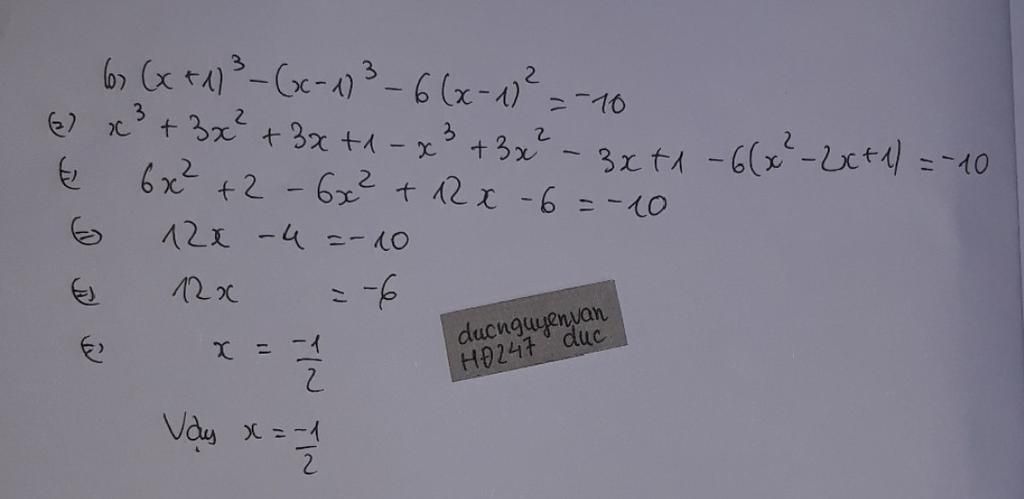 b) (x+1)³ - (x-1)³ - 6(x-1)² = -10
⇔ x³ + 3x² + 3x + 1 - x³ + 3x² - 3x + 1 - 6(x² - 2x + 1) = -10
⇔ 6x² + 2 - 6x² + 12x - 6 = -10
⇔ 12x - 4 = -10
⇔ 12x = -6
⇔ x = -1/2
Vậy x = -1/2
ducnguyenvan
HĐ247 duc